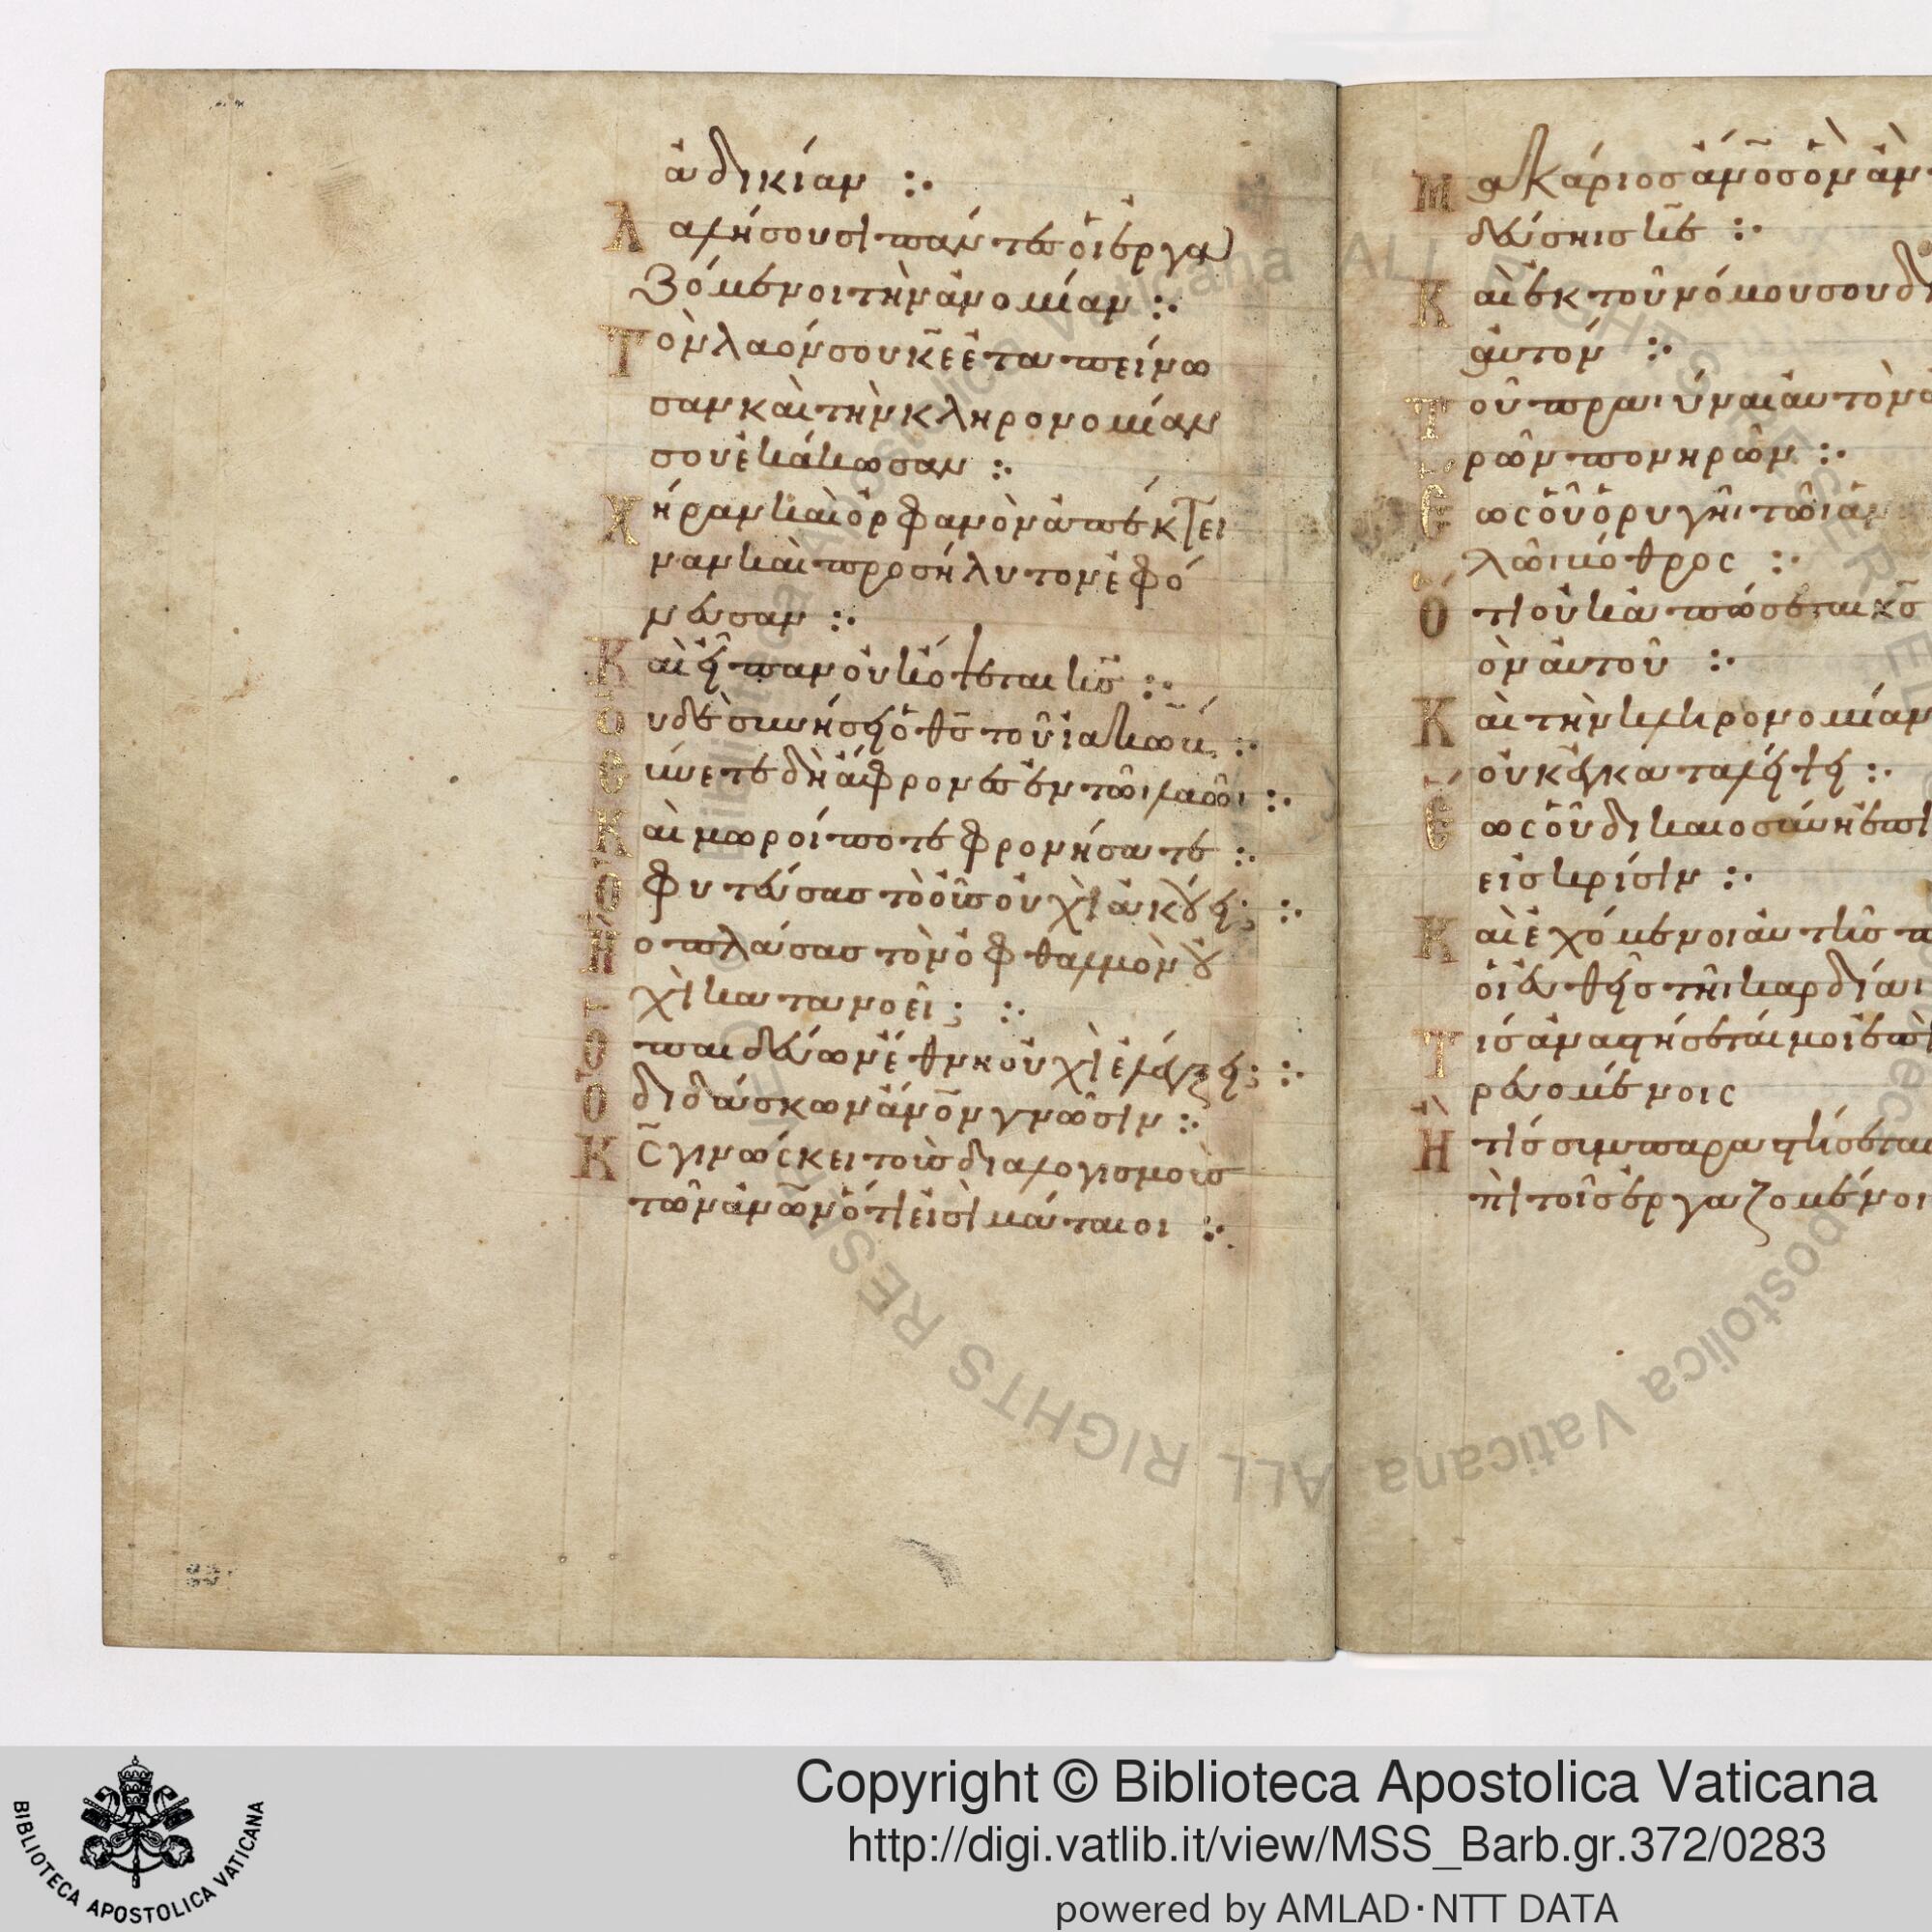 ἀδικίαν :·
Λαλήσουσι πάντες οἱ ἐργα
ζόμενοι τὴν ἀνομίαν :·
Τὸν λαόν σου κ̅ε̅ ἐταπείνω
σαν καὶ τὴν κληρονομίαν
σου ἐκάκωσαν :·
Χήραν καὶ ὀρφανὸν ἀπέκτει
ναν καὶ προσήλυτον ἐφό
νευσαν :·
Καὶ εἶπαν οὐκ ὄψεται κ̅ς̅ :·
Οὐδὲ συνήσει ὁ θ̅ς̅ τοῦ ἰακώβ :·
Σύνετε δὴ ἄφρονες ἐν τῶι λαῶι :·
Καὶ μωροί ποτε φρονήσατε :·
Ὁ φυτεύσας τὸ οὖς οὐχὶ ἀκούει; :·
Ἢ ὁ πλάσας τὸν ὀφθαλμὸν οὐ
χὶ κατανοεῖ; :·
Ὁ παιδεύων ἔθνη οὐχὶ ἐλέγξει; :·
Ὁ διδάσκων ἄν̅ο̅ν γνῶσιν :·
Κ̅ς̅ γινώσκει τοὺς διαλογισμοὺς
τῶν ἀν̅ω̅ν ὅτι εἰσὶ μάταιοι :·
Μακάριος ἄν̅ο̅ς ὃν ἂν
δεύσηις κ̅ε̅ :·
Καὶ ἐκ τοῦ νόμου σου δι
αὐτόν :·
Τοῦ πραῦναι αὐτὸν ἀ
ρῶν πονηρῶν :·
Ἕως οὗ ὀρυγῆι τῶι ἁμ
λῶι βόθρος :·
Ὅτι οὐκ ἀπώσεται κ̅ς̅
ὸν αὐτοῦ :·
Καὶ τὴν κληρονομίαν
οὐκ ἐγκαταλείψει :·
Ἕως οὗ δικαιοσύνη ἐπι
εἰς κρίσιν :·
Καὶ ἐχόμενοι αὐτῆς π
οἱ εὐθεῖς τῆι καρδίαι
Τίς ἀναστήσεταί μοι ἐπὶ
ρευομένοις
Ἢ τίς συμπαραστήσεται
πὶ τοῖς ἐργαζομένοι
Copyright © Biblioteca Apostolica Vaticana
http://digi.vatlib.it/view/MSS_Barb.gr.372/0283
powered by AMLAD·NTT DATA
BIBLIOTECA APOSTOLICA VATICANA